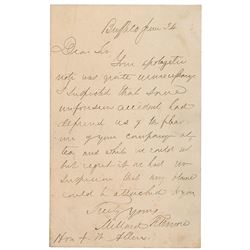 Buffalo June 24
Dear Sir
Your apologetic
note was quite unnecessary
I suspected that some
unforeseen accident had
deprived us of the pleas
ure of your company at
tea and while we could not
but regret it we had no
suspicion that any blame
could be attached to you
Truly Yours
Millard Fillmore
Hon